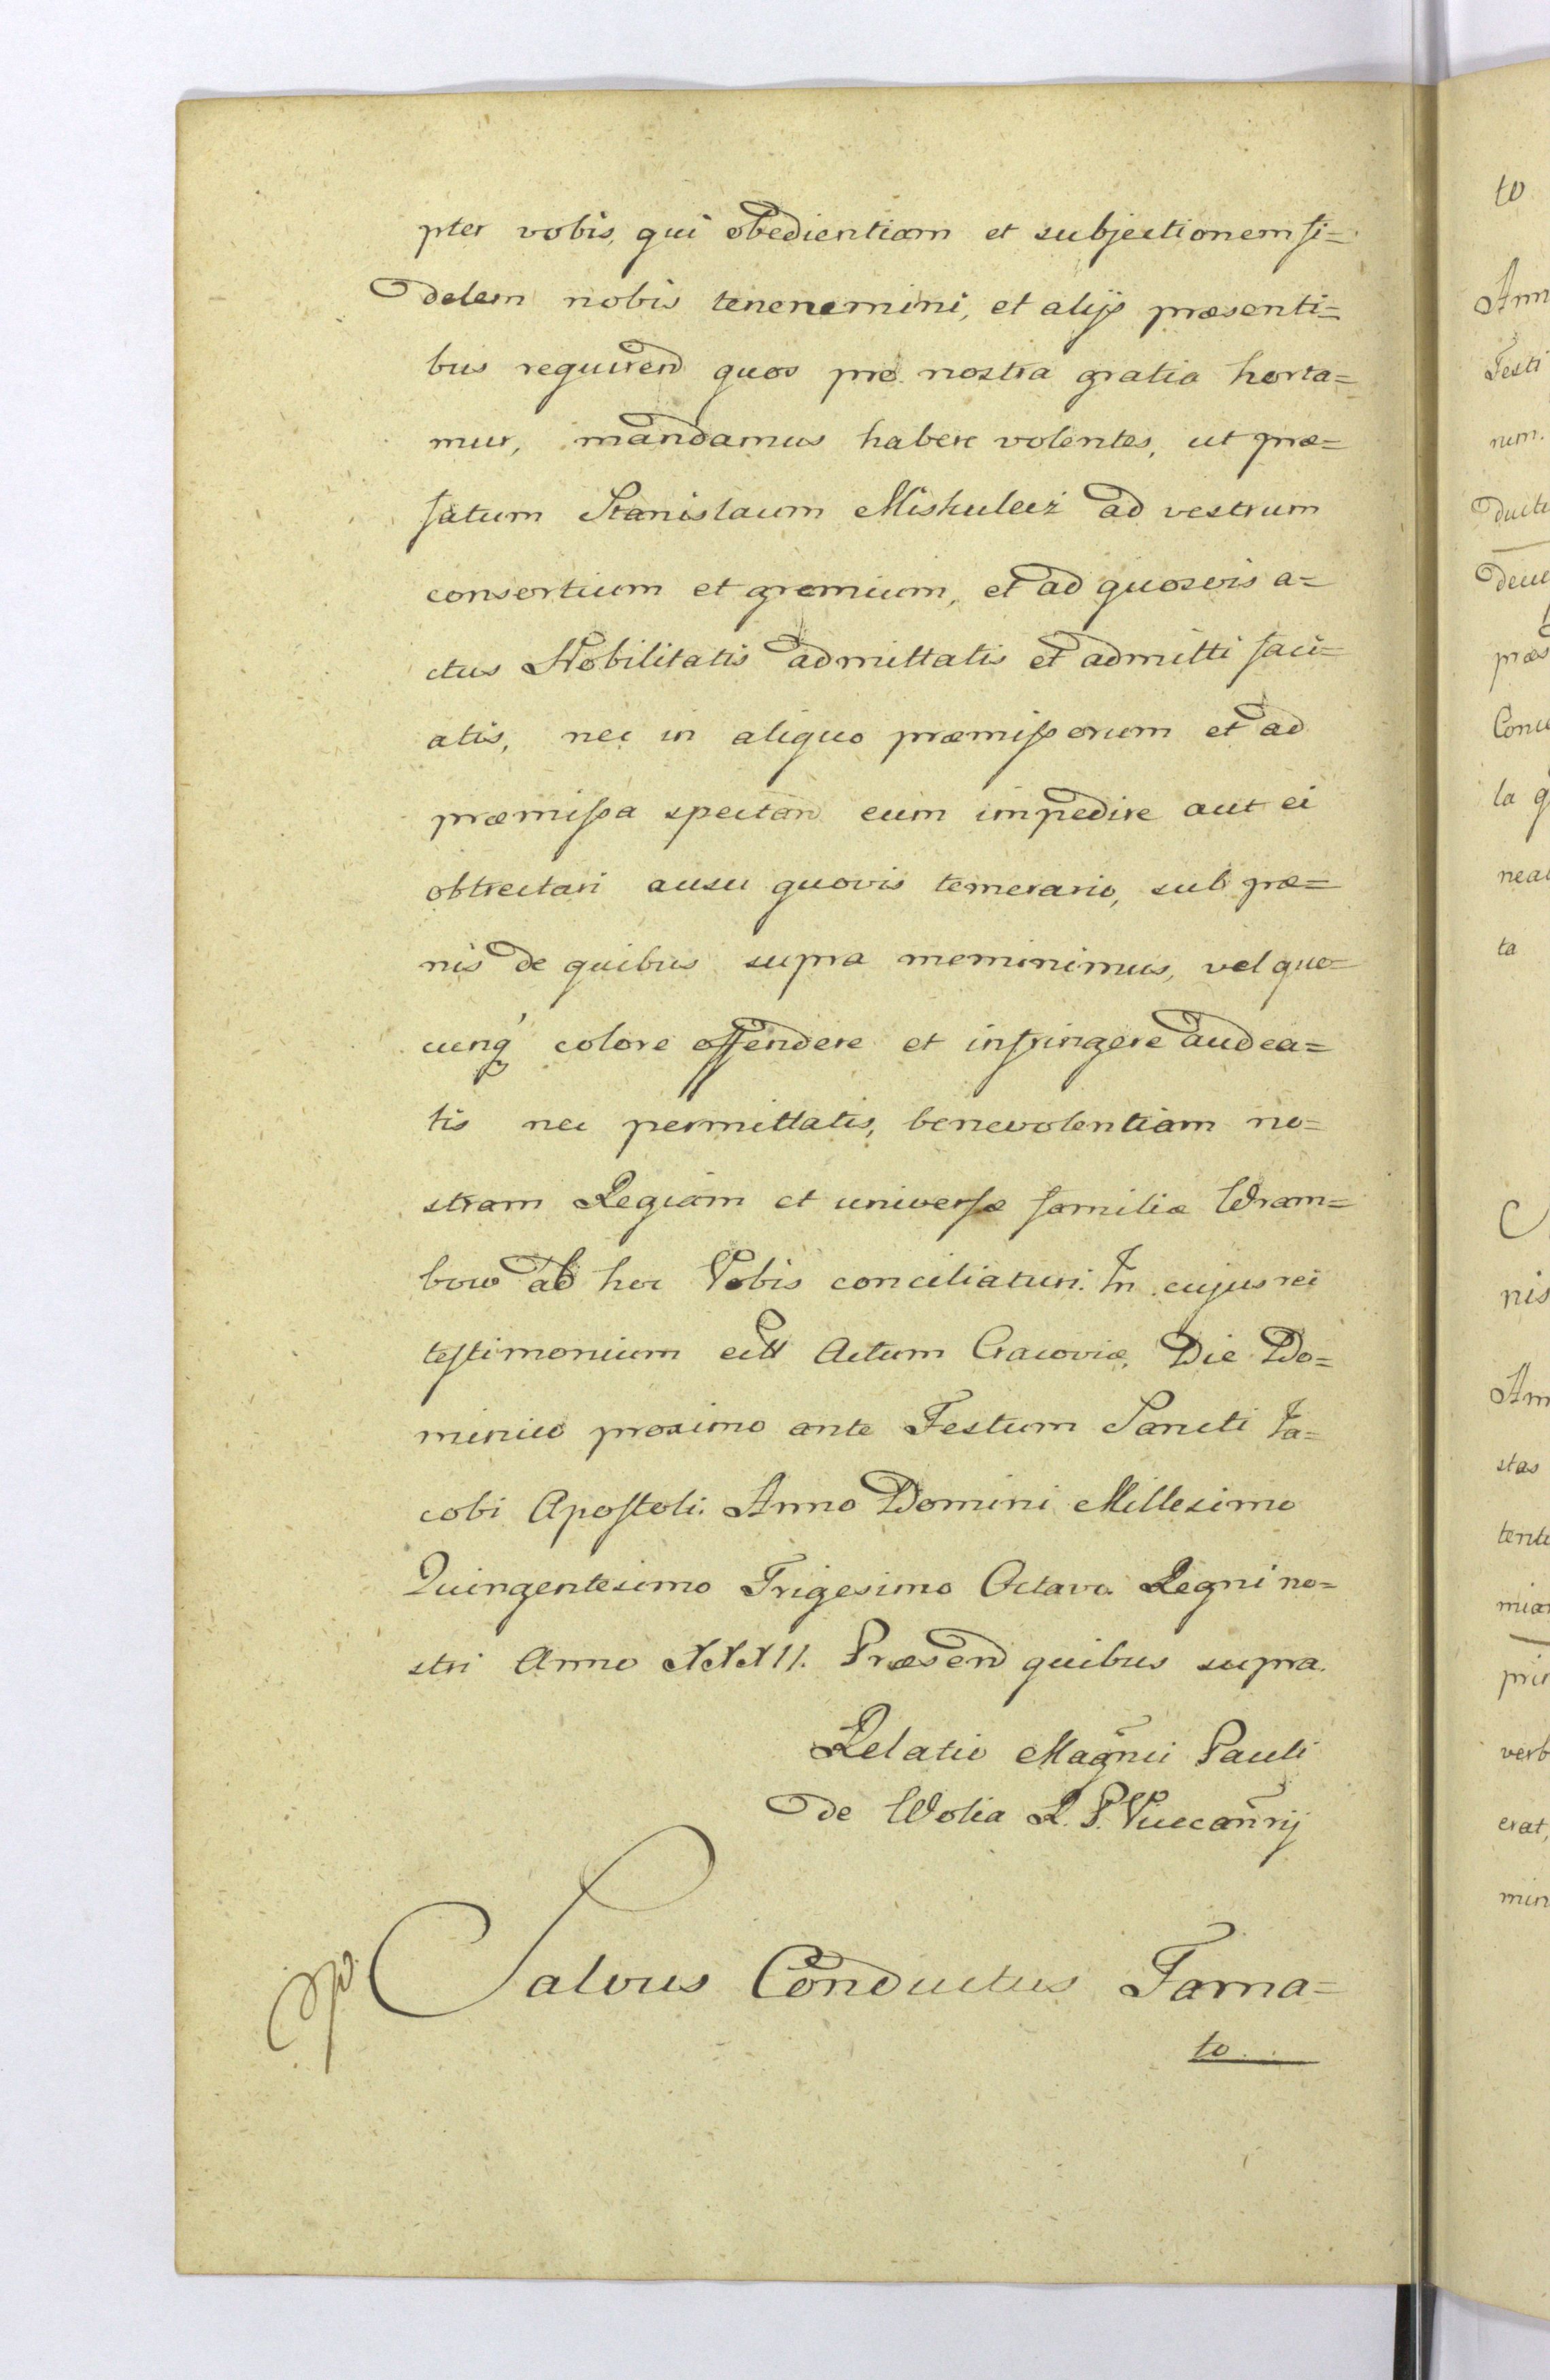 pter vobis, qui obedientiam et subjectionem fi=
delem nobis tenenemini, et alijs præsenti=
bus requirend quos pro nostra gratia horta=
mur, mandamus habere volentes, ut præ=
fatum Stanislaum Miskulecz ad vestrum
consortium et gremium, et ad quosvis a=
ctus Nobilitatis admittatis et admitti faci=
atis, nec in aliquo præmissorum et ad
præmissa spectan eum impedire aut ei
obtrectari ausu quovis temerario, sub præ=
nis de quibus supra meminimus, vel quo=
cunq colore offendere et infringere audea=
tis nec permittatis, benevolentiam no=
stram Regiam et universæ familiæ Wram=
bow ab hoc Vobis conciliaturi. In cujus rei
testimonium Actum Cracoviæ, Die Do=
minico proximo ante Festum Sancti Ja=
cobi Apostoli. Anno Domini Millesimo
Quingentesimo Trigesimo Octavo Regni no=
stri Anno XXXII. Præsend quibus supra.
Relatio Magnii Pauli
de Wolia R. P. Vicecanrij
Salvus Conductus Fama=
to
to
Ann
Festi
num.
ductu
præs
la q
ta
nis
stas
verb
erat,
min